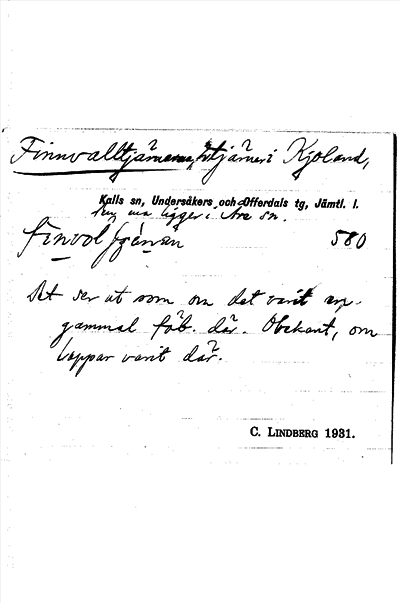 Finnvalltjärnarna, tjärnar i Kjoland,
Kalls sn, Undersåkers och Offerdals tg, Jämtl. l.
ligger i Åre sn.
finvol 580
Det ser ut som om det varit en
gammal fäb. där. Obekant, om
lappar varit där.
C. LINDBERG 1931.